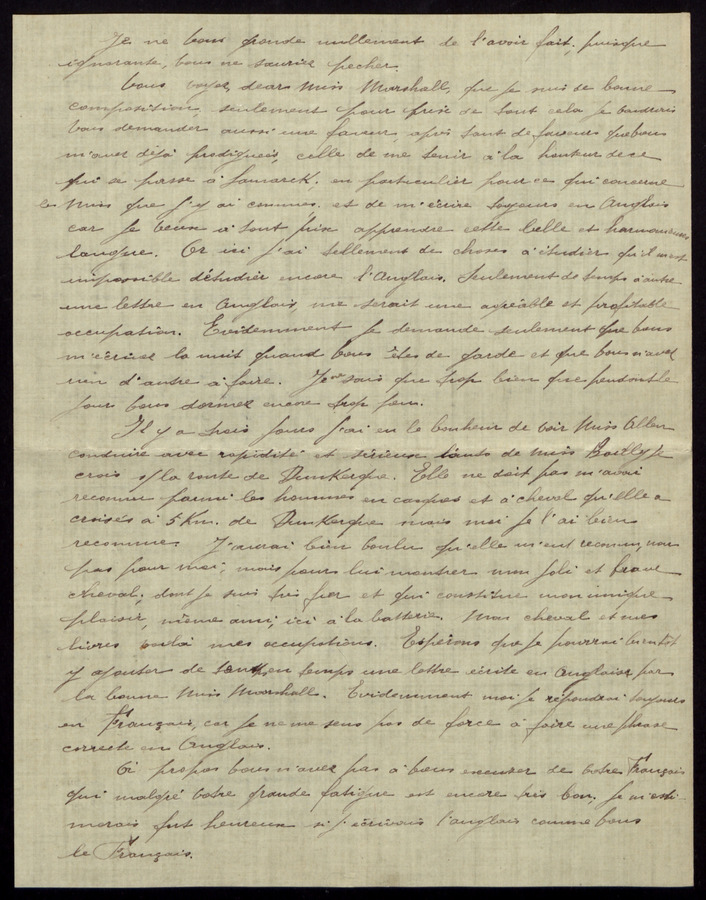 Je ne vous gronde nullement de l'avoir fait, puisque
ignorante, vous ne sauriez pecher.
Vous voyez, dear Miss Marshall, que je suis de bonne
composition, seulement pour prix de tout cela je voudrais
vous demander aussi une faveur, après tant de faveurs que vous
m'avez déjà prodiguées, celle de me tenir à la hauteur de ce
qui se passe à Lamarck, en particulier pour ce qui concerne
les Miss que j'y ai connues, et de m'écrire toujours en Anglais
car je veux à tout prix apprendre cette belle et harmonieuse
langue. Or ici j'ai tellement de choses à étudier qu'il m'est
impossible d'étudier encore l'Anglais. Seulement de temps à autre
une lettre en Anglais, me serait une agréable et profitable
occupation. Evidemment je demande seulement que vous
m'écrivez la nuit quand vous êtes de garde et que vous n'avez
rien d'autre à faire. Je ne sais que trop bien que pendant le
jour vous dormez encore trop peu.
Il y a trois jours j'ai eu le bonheur de voir Miss Allen
conduire avec rapidité et de Miss Bailly je
crois s/ la route de Dunkerque. Elle ne doit pas m'avoir
reconnu parmi les hommes en casques et à cheval qu'elle a
croisés à 5 Km. de Dunkerque mais moi je l'ai bien
reconnue. J'aurai bien voulu qu'elle m'eut reconnu, non
pas pour moi, mais pour lui montrer mon joli et brave
cheval, dont je suis très fier et qui constitue mon unique
plaisir, même ami, ici à la batterie. Mon cheval et mes
livres voilà mes occupations. Espérons que je pourrai bientôt
y ajouter de temps en temps une lettre écrite en Anglais par
la bonne Miss Marshall. Evidemment moi je répondrai toujours
en Français, car je ne me sens pas de force à faire une phrase
correcte en Anglais.
A propos vous n'avez pas à vous excuser de votre Français
qui malgré votre grande fatigue est encore très bon. Je m'esti-
merais fort heureux si j'écrivais l'anglais comme vous
le Français.